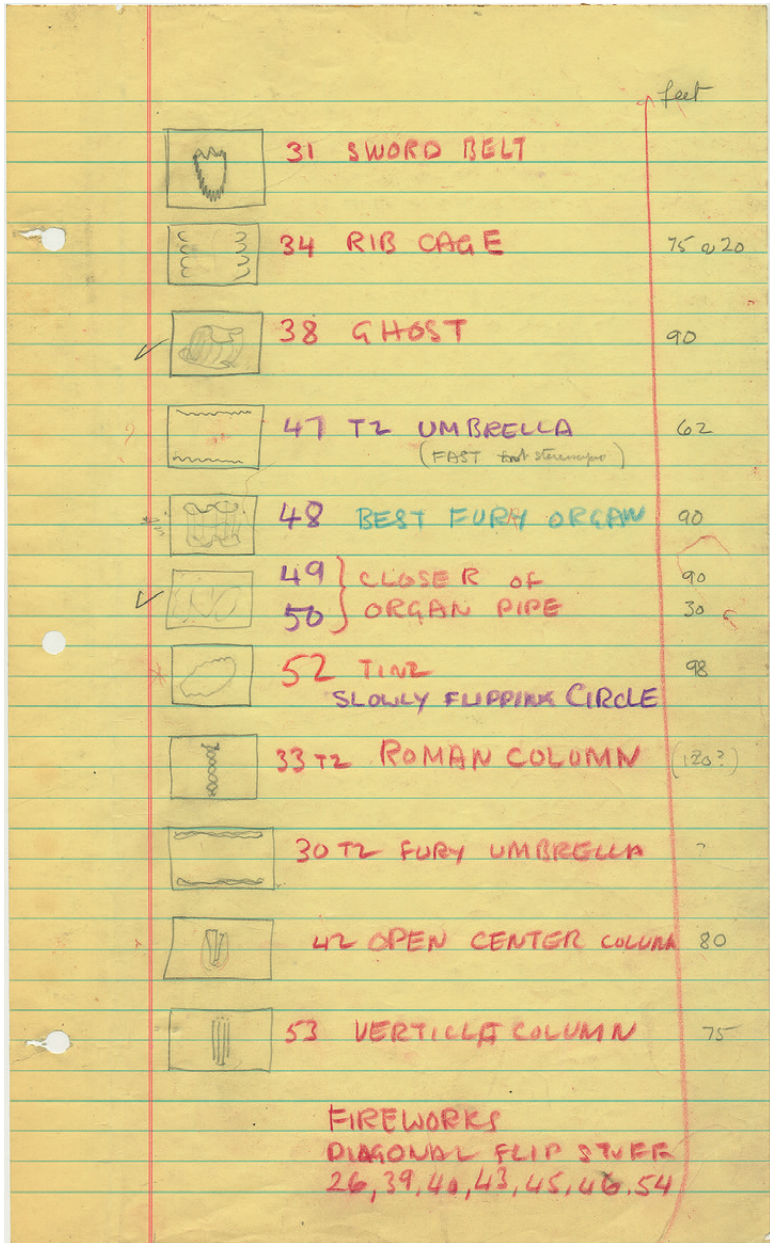 feet
31 SWORD BELT
34 RIB CAGE 75 @ 20
38 GHOST 90
47 T2 UMBRELLA 62
(FAST)
48 BEST FURY ORGAN 90
49 } CLOSER OF 90
50 } ORGAN PIPE 30
52 98
SLOWLY FLIPPING CIRCLE
33 T2 ROMAN COLUMN (120?)
30 T2 FURY UMBRELLA ?
42 OPEN CENTER COLUMN 80
53 COLUMN 75
FIREWORKS
DIAGONAL FLIP STUFF
26, 39, 40, 43, 45, 46, 54